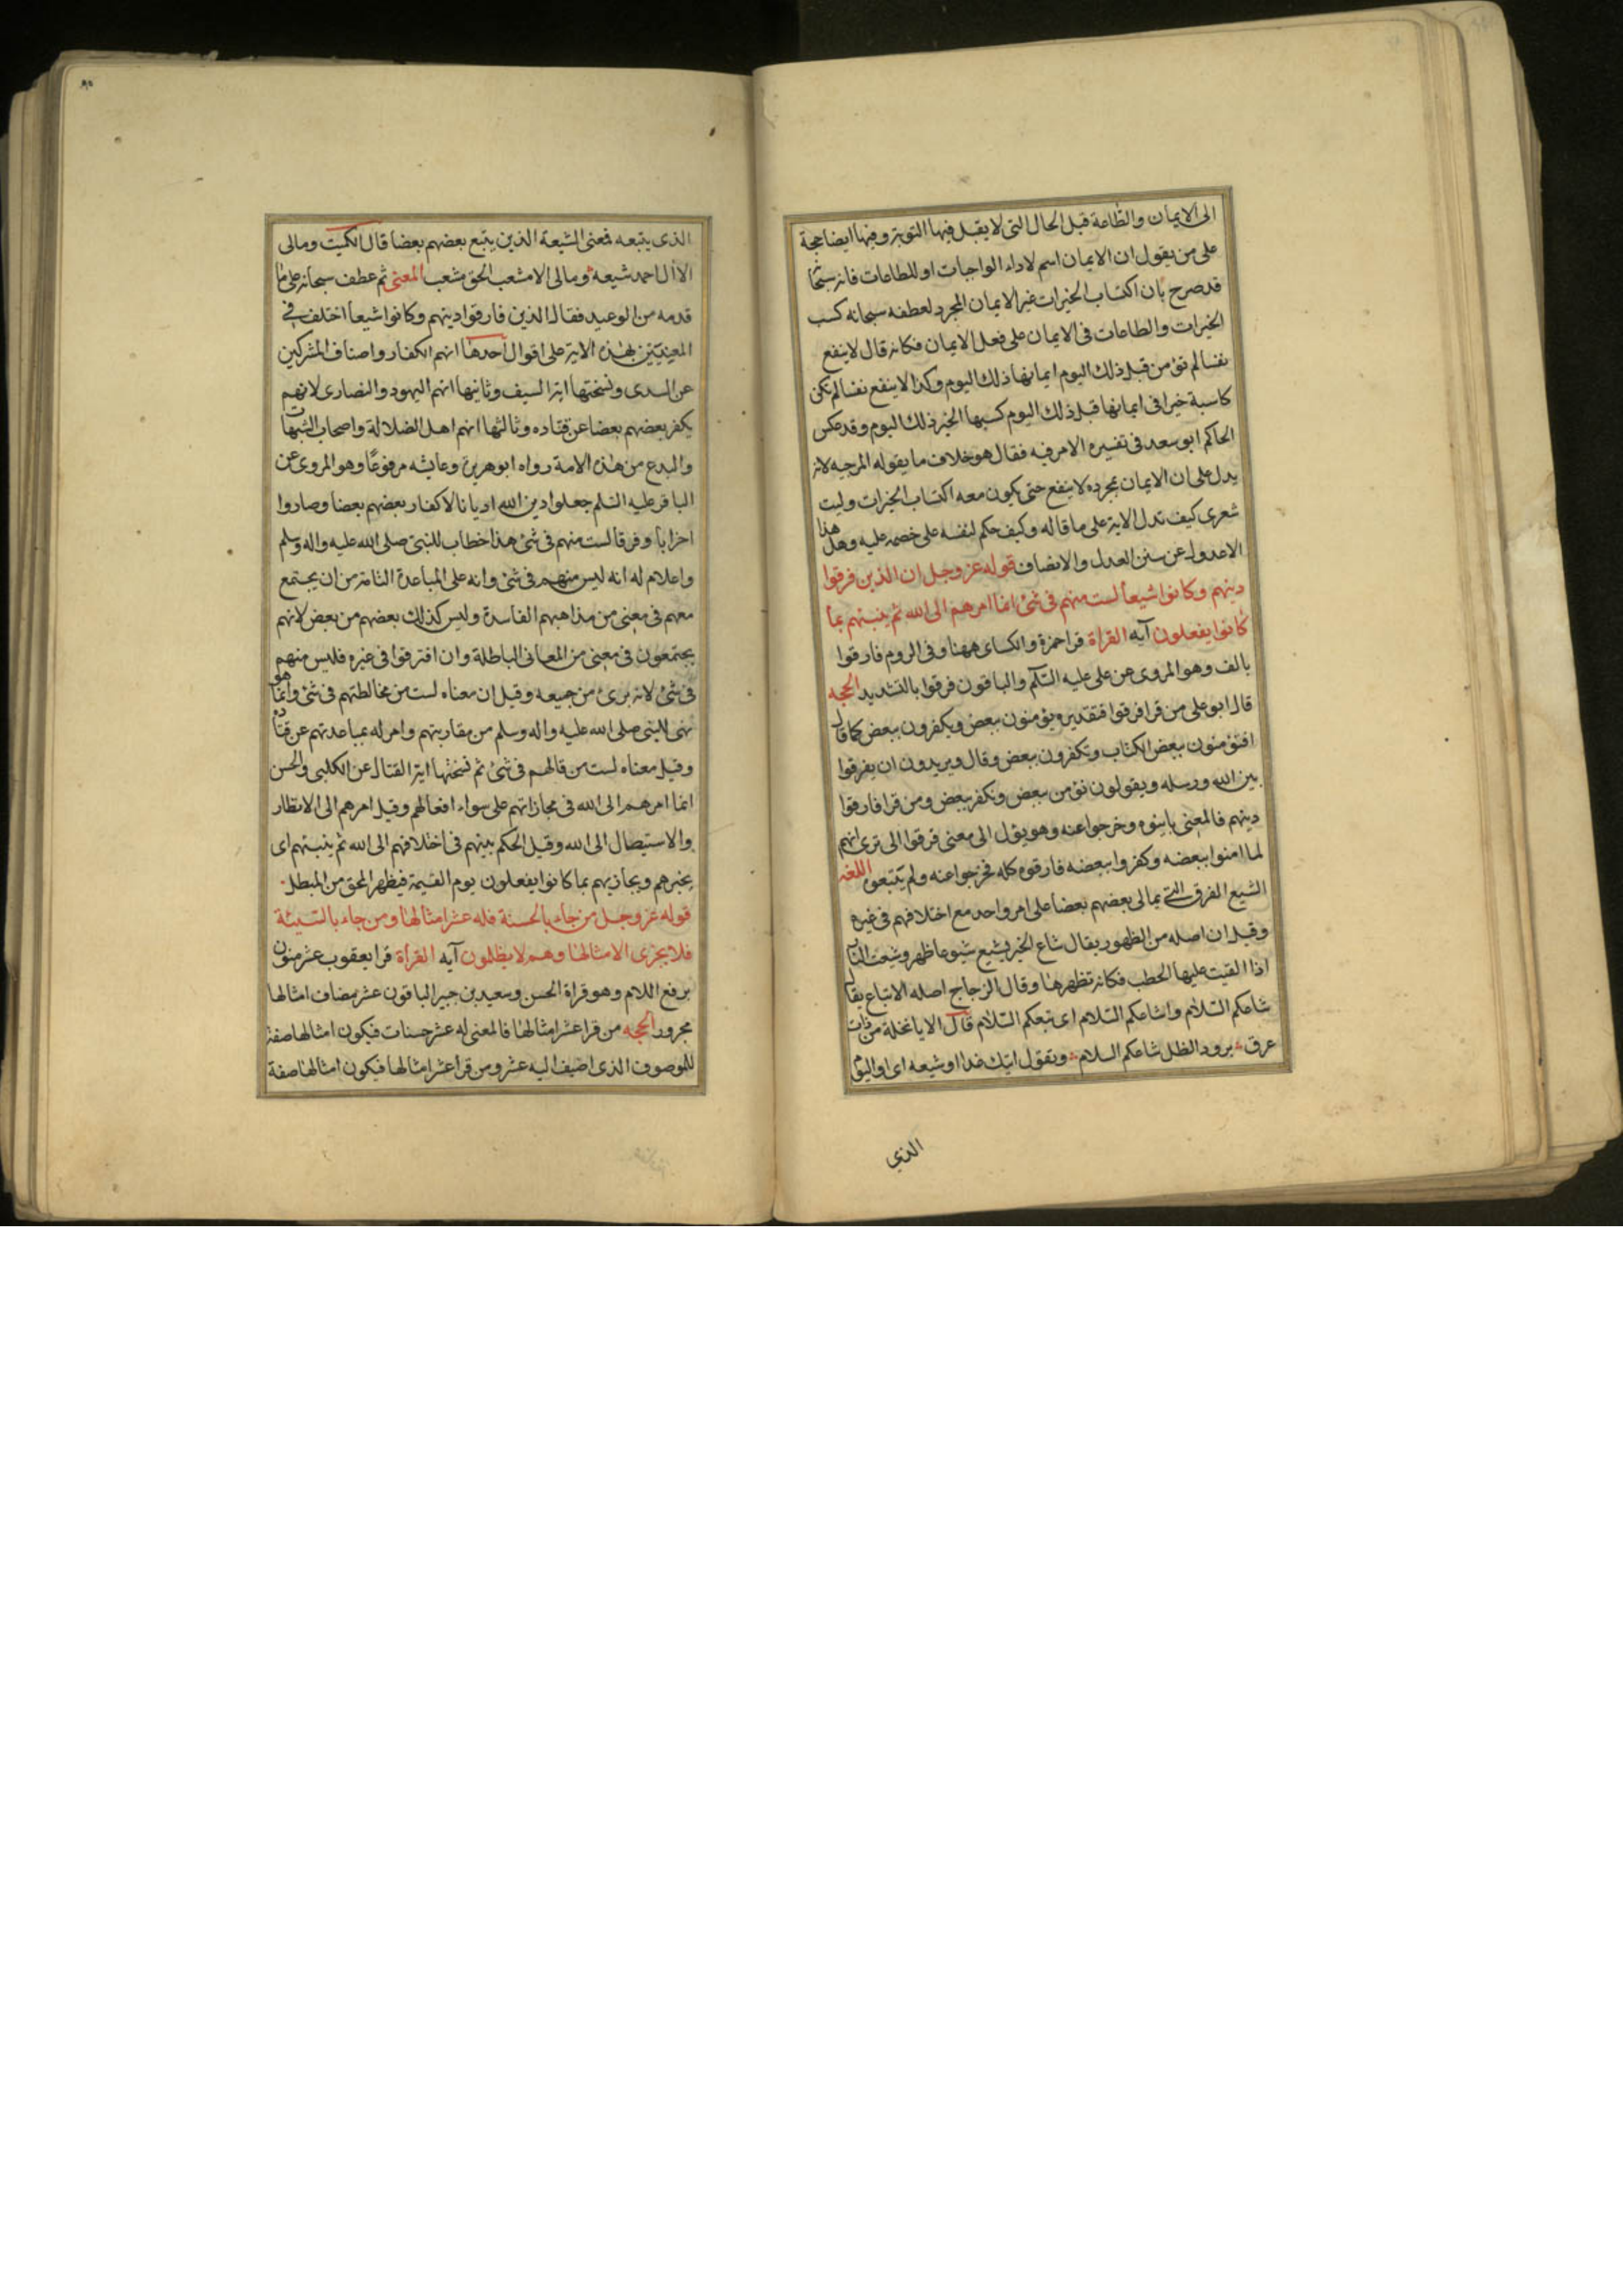 الى الايمان والطاعة قبل الحال التى لا يقبل فيها التوبة وفيها ايضا حجة
على من يقول ان الايمان اسم لاداء الواجبات او للطاعات فانه سبحانه
قد صرح بان اكتساب الخيرات غير الايمان المجرد لعطفه سبحانه كسب
الخيرات والطاعات فى الايمان على فعل الايمان فكانه قال لا ينفع
نفسا لم تؤمن قبل ذلك اليوم ايمانها ذلك اليوم وكذا لا ينفع نفسا لم تكن
كاسبة خيرا فى ايمانها قبل ذلك اليوم كسبها الخير ذلك اليوم وقد عكس
الحاكم ابو سعد فى تفسيره الامر فيه فقال هو خلاف ما يقوله المرجيه لانه
يدل على ان الايمان بمجرده لا ينفع حتى يكون معه اكتساب الخيرات وليت
شعرى كيف تدل الاية على ما قاله وكيف حكم لنفسه على خصمه عليه وهل هذا
الا عدول عن سنن العدل والانصاف قوله عز وجل ان الذين فرقوا
دينهم وكانوا شيعا لست منهم فى شئ انما امرهم الى الله ثم ينبئهم بما
كانوا يفعلون آيه القراة قرا حمزة والكساى ههنا وفى الروم فارقوا
بالف وهو المروى عن على عليه السلم والباقون فرقوا بالتشديد الحجه
قال ابو على من قرا فرقوا فتقديره يؤمنون ببعض ويكفرون ببعض كما قال
افتؤمنون ببعض الكتاب وتكفرون ببعض وقال ويريدون ان يفرقوا
بين الله ورسله ويقولون نؤمن ببعض ونكفر ببعض ومن قرا فارقوا
دينهم فالمعنى باينوه وخرجوا عنه وهو يؤل الى معنى فرقوا الى ترى انهم
لما امنوا ببعضه وكفروا ببعضه فارقوه كله فخرجوا عنه ولم يتبعوه اللغه
الشيع الفرق التى يمالى بعضهم بعضا على امر واحد مع اختلافهم فى غيره
وقيل ان اصله من الظهور يقال شاع الخبر يشيع شيوعا ظهر وشيعت النار
اذا القيت عليها الحطب فكانه تظهرها وقال الزجاج اصله الاتباع يقال
شاعكم السلام واشاعكم السلام اى تبعكم السلام قال الا يا نخلة من ذات
عرق برود الظل شاعكم السلام وتقول اتيك غدا او شيعه اى او اليوم
الذى
الذى يتبعه فمعنى الشيعة الذين يتبع بعضهم بعضا قال الكميت ومالى
الا ال احمد شيعة ومالى الا مشعب الحق مشعب المعنى ثم عطف سبحانه على ما
قدمه من الوعيد فقال الذين فارقوا دينهم وكانوا شيعا اختلف فى
المعنيين بهذه الاية على اقوال احدها انهم الكفار واصناف المشركين
عن السدى ونسختها اية السيف وثانيها انهم اليهود والنصارى لانهم
يكفر بعضهم بعضا عن قتاده وثالثها انهم اهل الضلالة واصحاب الشبهات
والبدع من هذه الامة رواه ابو هريرة وعايشه مرفوعا وهو المروى عن
الباقر عليه السلم جعلوا دين الله اديانا لاكفار بعضهم بعضا وصاروا
احزابا وفرقا لست منهم فى شئ هذا خطاب للنبى صلى الله عليه واله وسلم
واعلام له انه ليس منهم فى شئ وانه على المباعدة التامة من ان يجتمع
معهم فى معنى من مذاهبهم الفاسدة وليس كذلك بعضهم من بعض لانهم
يجتمعون فى معنى من المعانى الباطلة وان افترقوا فى غيره فليس منهم
فى شئ لانه برئ من جميعه وقيل ان معناه لست من مخالطتهم فى شئ وانما هو
نهى للنبى صلى الله عليه واله وسلم من مقاربتهم وامر له بمباعدتهم عن قتاده
وقيل معناه لست من قتالهم فى شئ ثم نسختها اية القتال عن الكلبى والحسن
انما امرهم الى الله فى مجازاتهم على سواء افعالهم وقيل امرهم الى الانظار
والاستيصال الى الله وقيل الحكم بينهم فى اختلافهم الى الله ثم ينبئهم اى
يخبرهم ويجازيهم بما كانوا يفعلون يوم القيمة فيظهر المحق من المبطل
قوله عز وجل من جاء بالحسنة فله عشر امثالها ومن جاء بالسيئة
فلا يجزى الا مثالها وهم لا يظلمون آيه القراة قرا يعقوب عشر منون
برفع اللام وهو قراة الحسن وسعيد بن جبير الباقون عشر مضاف امثالها
مجرور الحجه من قرا عشر امثالها فالمعنى له عشر حسنات فيكون امثالها صفة
للموصوف الذى اضيف اليه عشر ومن قرا عشر امثالها فيكون امثالها صفة